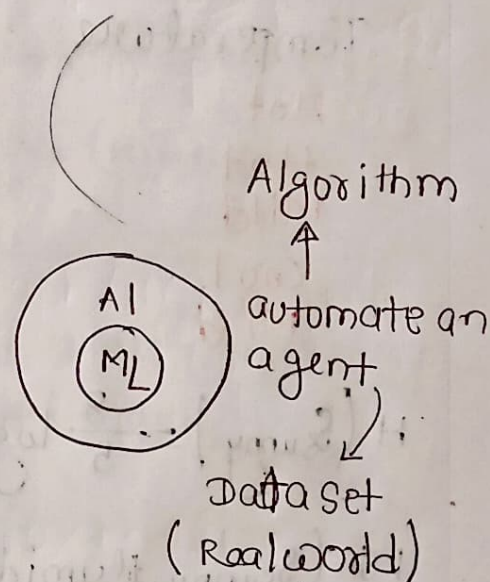 Algorithm
AI
ML
automate an
agent
Dataset
(Realworld)